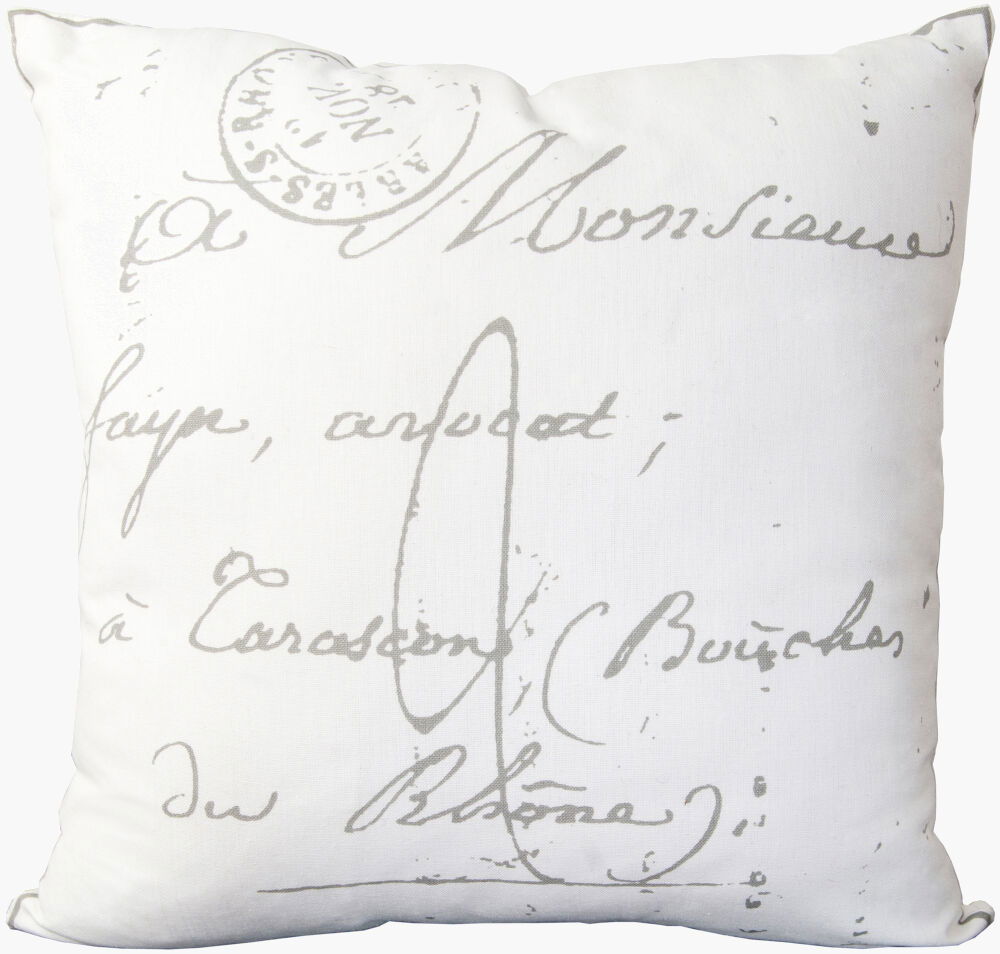 ARLES-S-RHO
1º
NOV
18
A Monsieur
fayn, avocat ;
à Tarascon (Bouches
du Rhône)